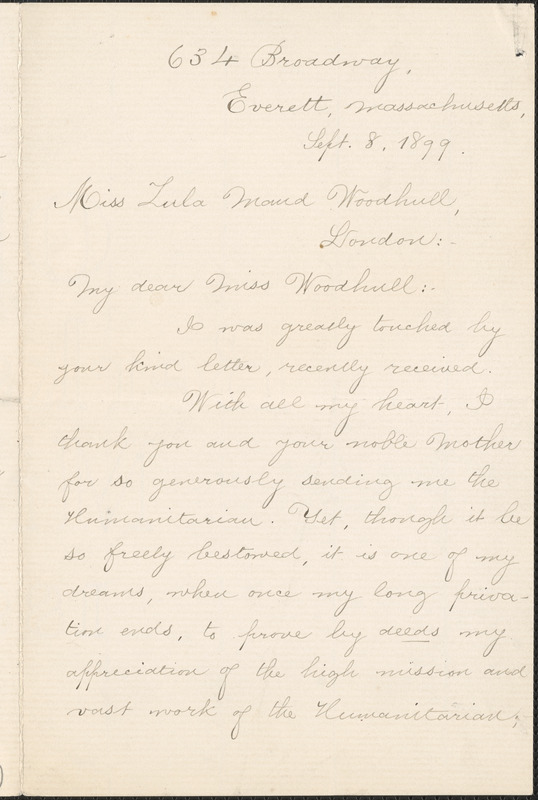 634 Broadway,
Everett, Massachusetts,
Sept. 8, 1899.
Miss Zula Maud Woodhull,
London:-
My dear Miss Woodhull:-
I was greatly touched by
your kind letter, recently received.
With all my heart, I
thank you and your noble Mother
for so generously sending me the
Humanitarian. Yet, though it be
so freely bestowed, it is one of my
dreams, when once my long priva-
tion ends, to prove by deeds my
appreciation of the high mission and
vast work of the Humanitarian;